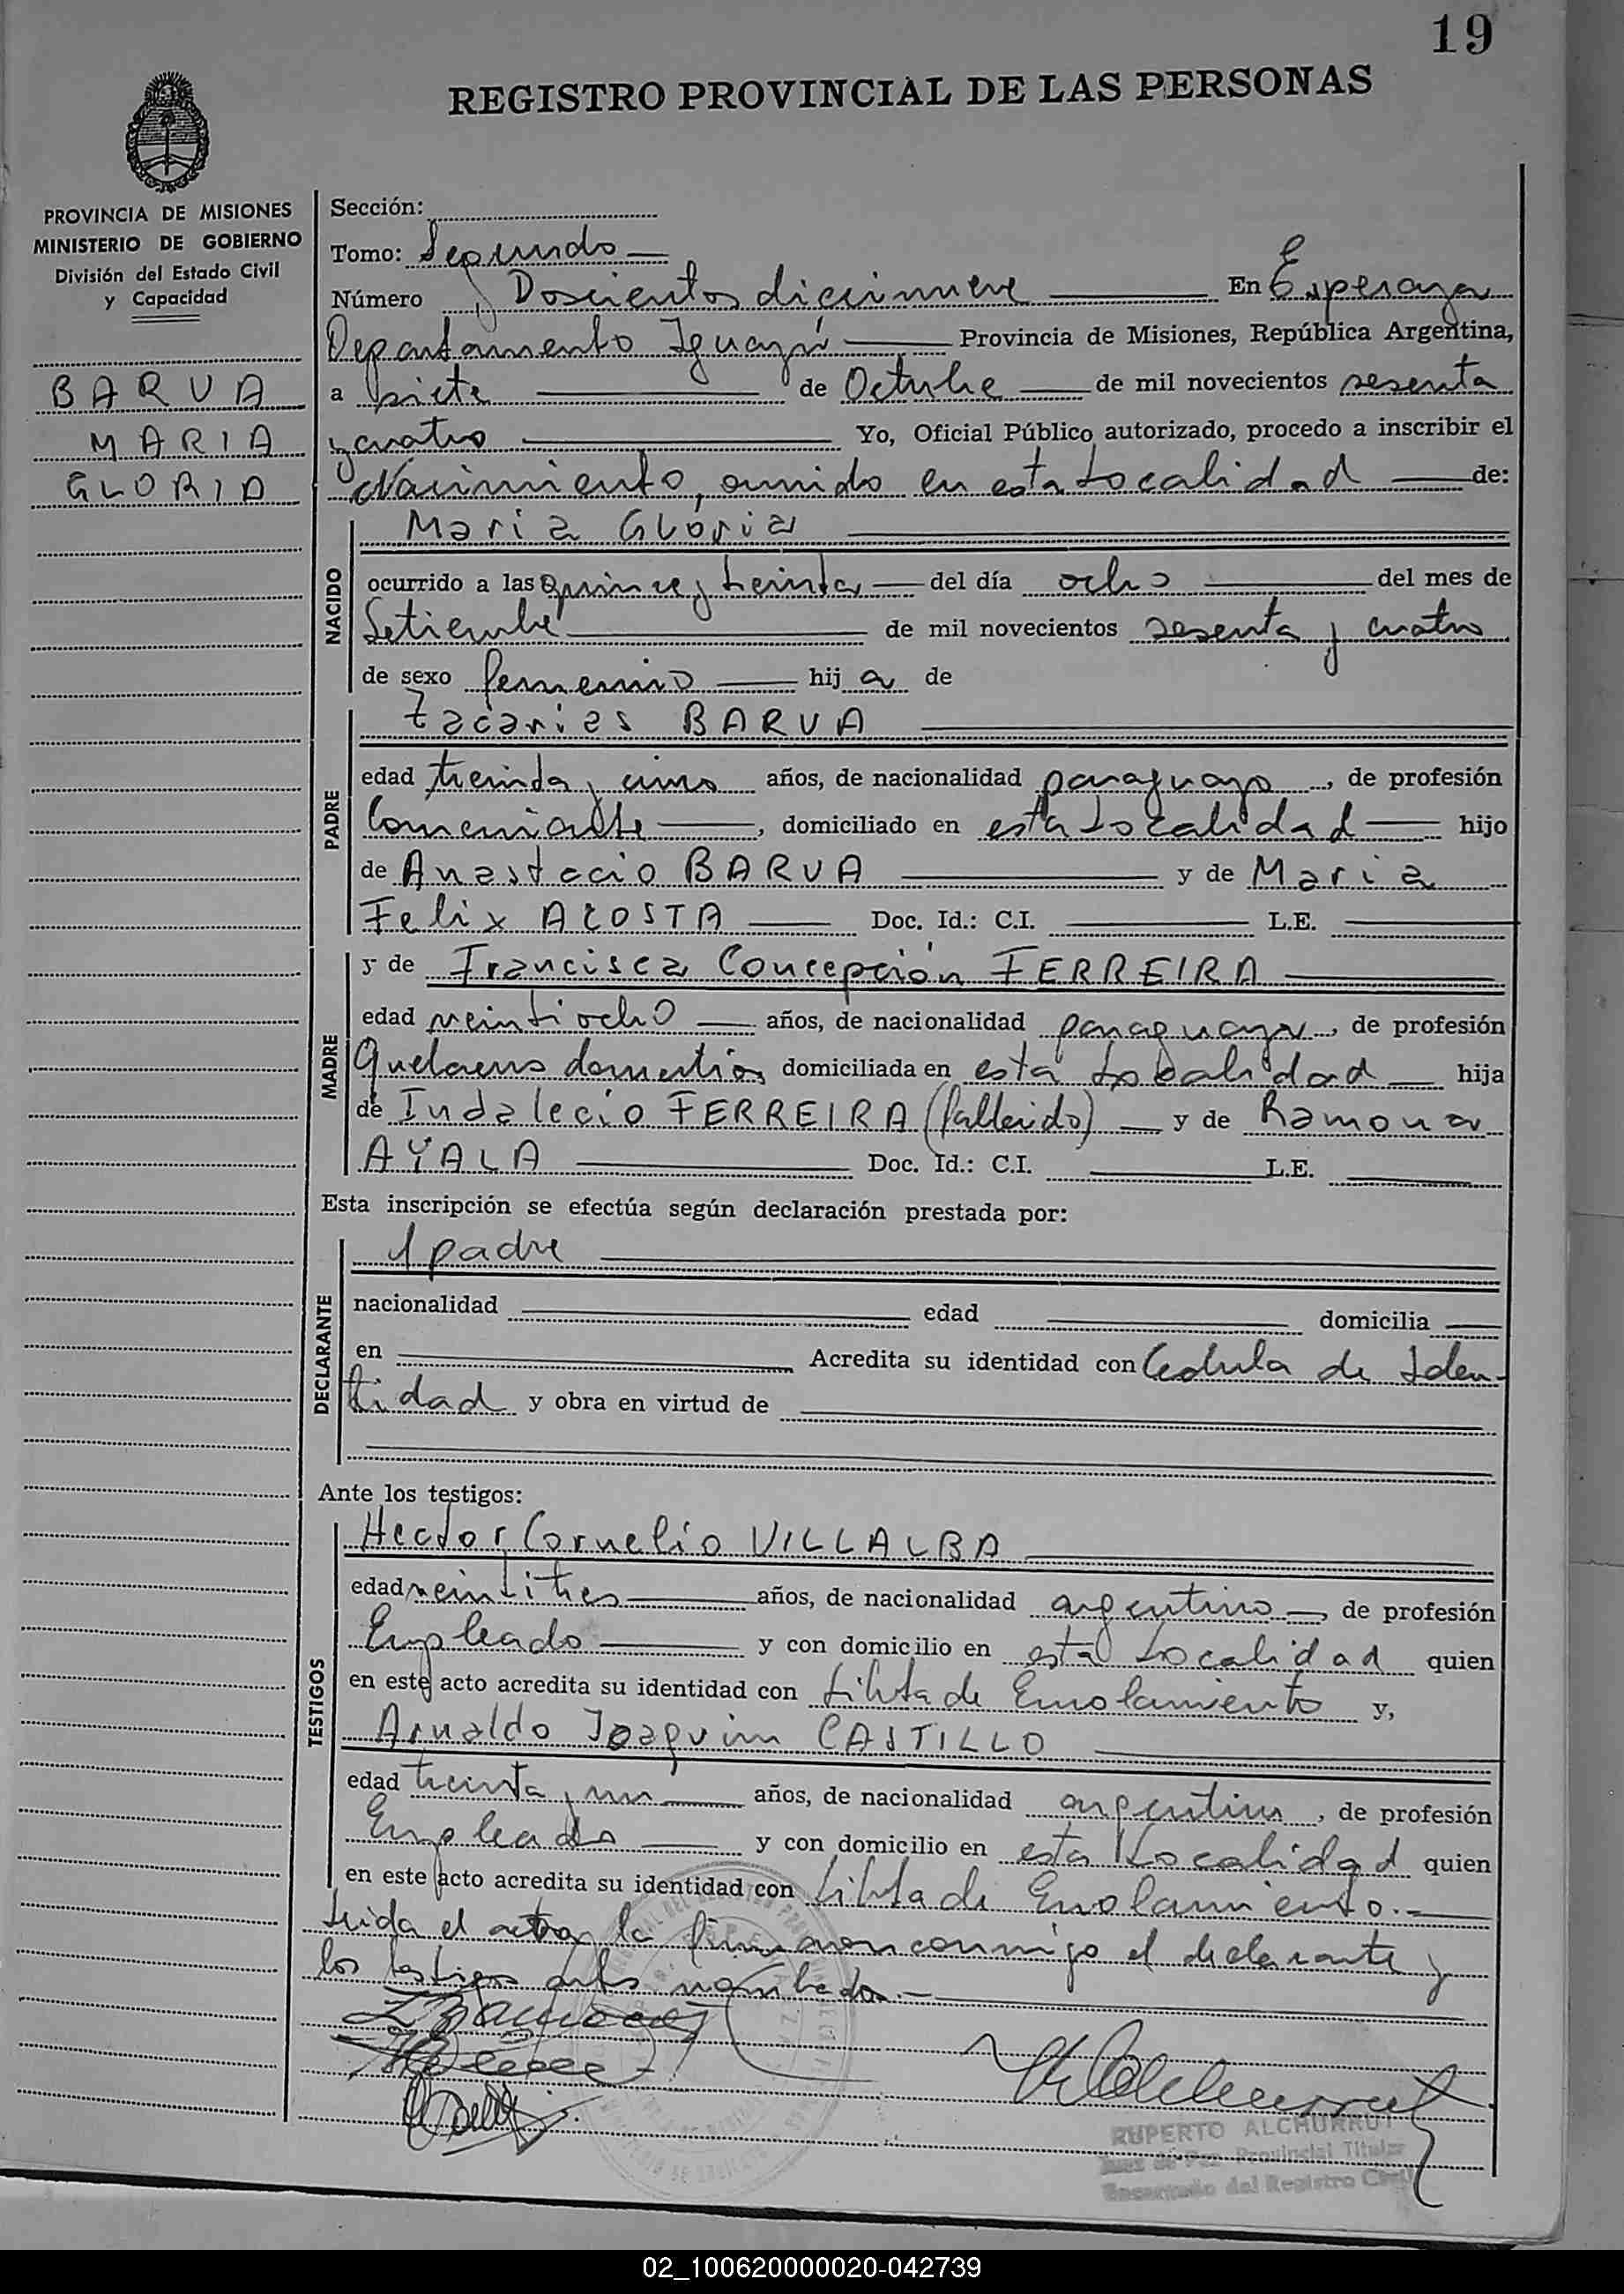 19
REGISTRO PROVINCIAL DE LAS PERSONAS
PROVINCIA DE MISIONES
MINISTERIO DE GOBIERNO
División del Estado Civil
y Capacidad
BARUA
MARIA
GLORIA
Sección:
Tomo: Segundo
Número Doscientos diecinueve En Esperanza
Departamento Iguazú Provincia de Misiones, República Argentina,
a siete de Octubre de mil novecientos sesenta
y cuatro Yo, Oficial Público autorizado, procedo a inscribir el
Nacimiento, ocurrido en esta Localidad de:
Maria Gloria
NACIDO
ocurrido a las quince y treinta del día ocho del mes de
Setiembre de mil novecientos sesenta y cuatro
de sexo femenino hij a de
PADRE
Zacarias BARUA
edad treinta y cinco años, de nacionalidad paraguayo, de profesión
Comerciante, domiciliado en esta Localidad hijo
de Anastacio BARUA y de Maria
Felix ACOSTA Doc. Id.: C.I. L.E.
MADRE
y de Francisca Concepción FERREIRA
edad veintiocho años, de nacionalidad paraguaya, de profesión
Quehaceres domesticos domiciliada en esta Localidad hija
de Indalecio FERREIRA (fallecido) y de Ramona
AYALA Doc. Id.: C.I. L.E.
Esta inscripción se efectúa según declaración prestada por:
DECLARANTE
padre
nacionalidad edad domicilia
en Acredita su identidad con Cedula de Iden-
tidad y obra en virtud de
Ante los testigos:
TESTIGOS
Hector Cornelio VILLALBA
edad veintitres años, de nacionalidad argentino, de profesión
Empleado y con domicilio en esta Localidad quien
en este acto acredita su identidad con Libreta de Enrolamiento y,
Arnaldo Joaquin CASTILLO
edad treinta y un años, de nacionalidad argentino, de profesión
Empleado y con domicilio en esta Localidad quien
en este acto acredita su identidad con Libreta de Enrolamiento.-
Leida el acta, la firmaron conmigo el declarante y
los testigos antes nombrados.-
RUPERTO ALCHURRUT
Juez de Paz Provincial Titular
Encargado del Registro Civil
02_100620000020-042739